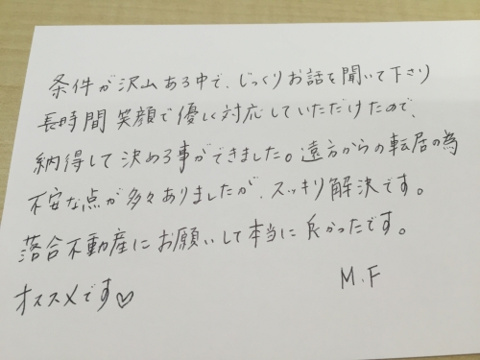 条件が沢山ある中で、じっくりお話を聞いて下さり
長時間笑顔で優しく対応していただけたので、
納得して決める事ができました。遠方からの転居の為
不安な点が多々ありましたが、スッキリ解決です。
落合不動産にお願いして本当に良かったです。
オススメです♡
M.F